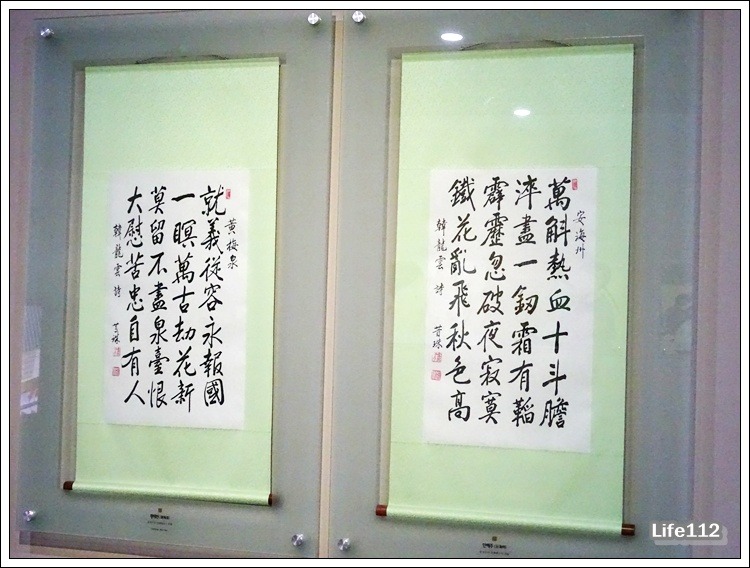 安海州
萬斛熱血十斗膽
淬盡一釰霜有鞱
霹靂忽破夜寂寞
鐵花亂飛秋色高
韓龍雲 詩
黃梅泉
就義從容永報國
一瞑萬古劫花新
莫留不盡泉臺恨
大慰苦忠自有人
韓龍雲 詩
Life112